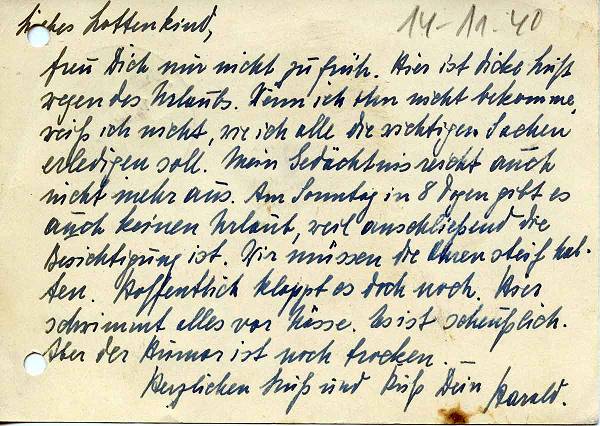 Liebes Lottenkind,
14-11.40
freu Dich nur nicht zu früh. Hier ist dicke Luft
wegen des Urlaubs. Wenn ich ihn nicht bekomme,
weiß ich nicht, wie ich alle die wichtigen Sachen
erledigen soll. Mein Gedächtnis reicht auch
nicht mehr aus. Am Sonntag in 8 Tgen gibt es
auch keinen Urlaub, weil anschließend die
Besichtigung ist. Wir müssen die Ohren steif hal-
ten. Hoffentlich klappt es doch noch. Hier
schwimmt alles vor Nässe. Es ist scheußlich.
Aber der Humor ist noch trocken.
Herzlichen Gruß und Kuß Dein Harald.